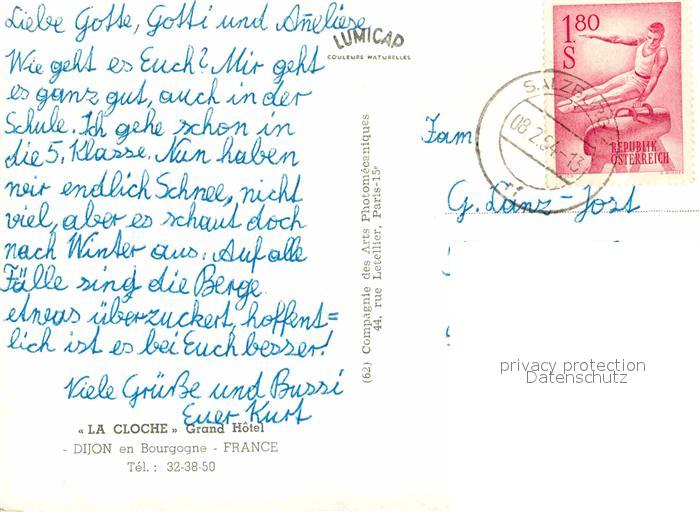 Liebe Gotte, Gotti und Anneliese
Wie geht es Euch? Mir geht
es ganz gut, auch in der
Schule. Ich gehe schon in
die 5. Klasse. Nun haben
wir endlich Schnee, nicht
viel, aber es schaut doch
nach Winter aus. Auf alle
Fälle sing die Berge
etwas überzuckert, hoffent=
lich ist es bei Euch besser!
Viele Grüße und Bussi
Euer Kurt
« LA CLOCHE » Grand Hôtel
- DIJON en Bourgogne - FRANCE
Tél. : 32-38-50
LUMICAP
COULEURS NATURELLES
(62) Compagnie des Arts Photomécaniques
44, rue Letellier, Paris-15e
1.80
S
REPUBLIK
ÖSTERREICH
SALZBURG
08.2.64-13
Fam.
G. Lanz-Jost
privacy protection
Datenschutz